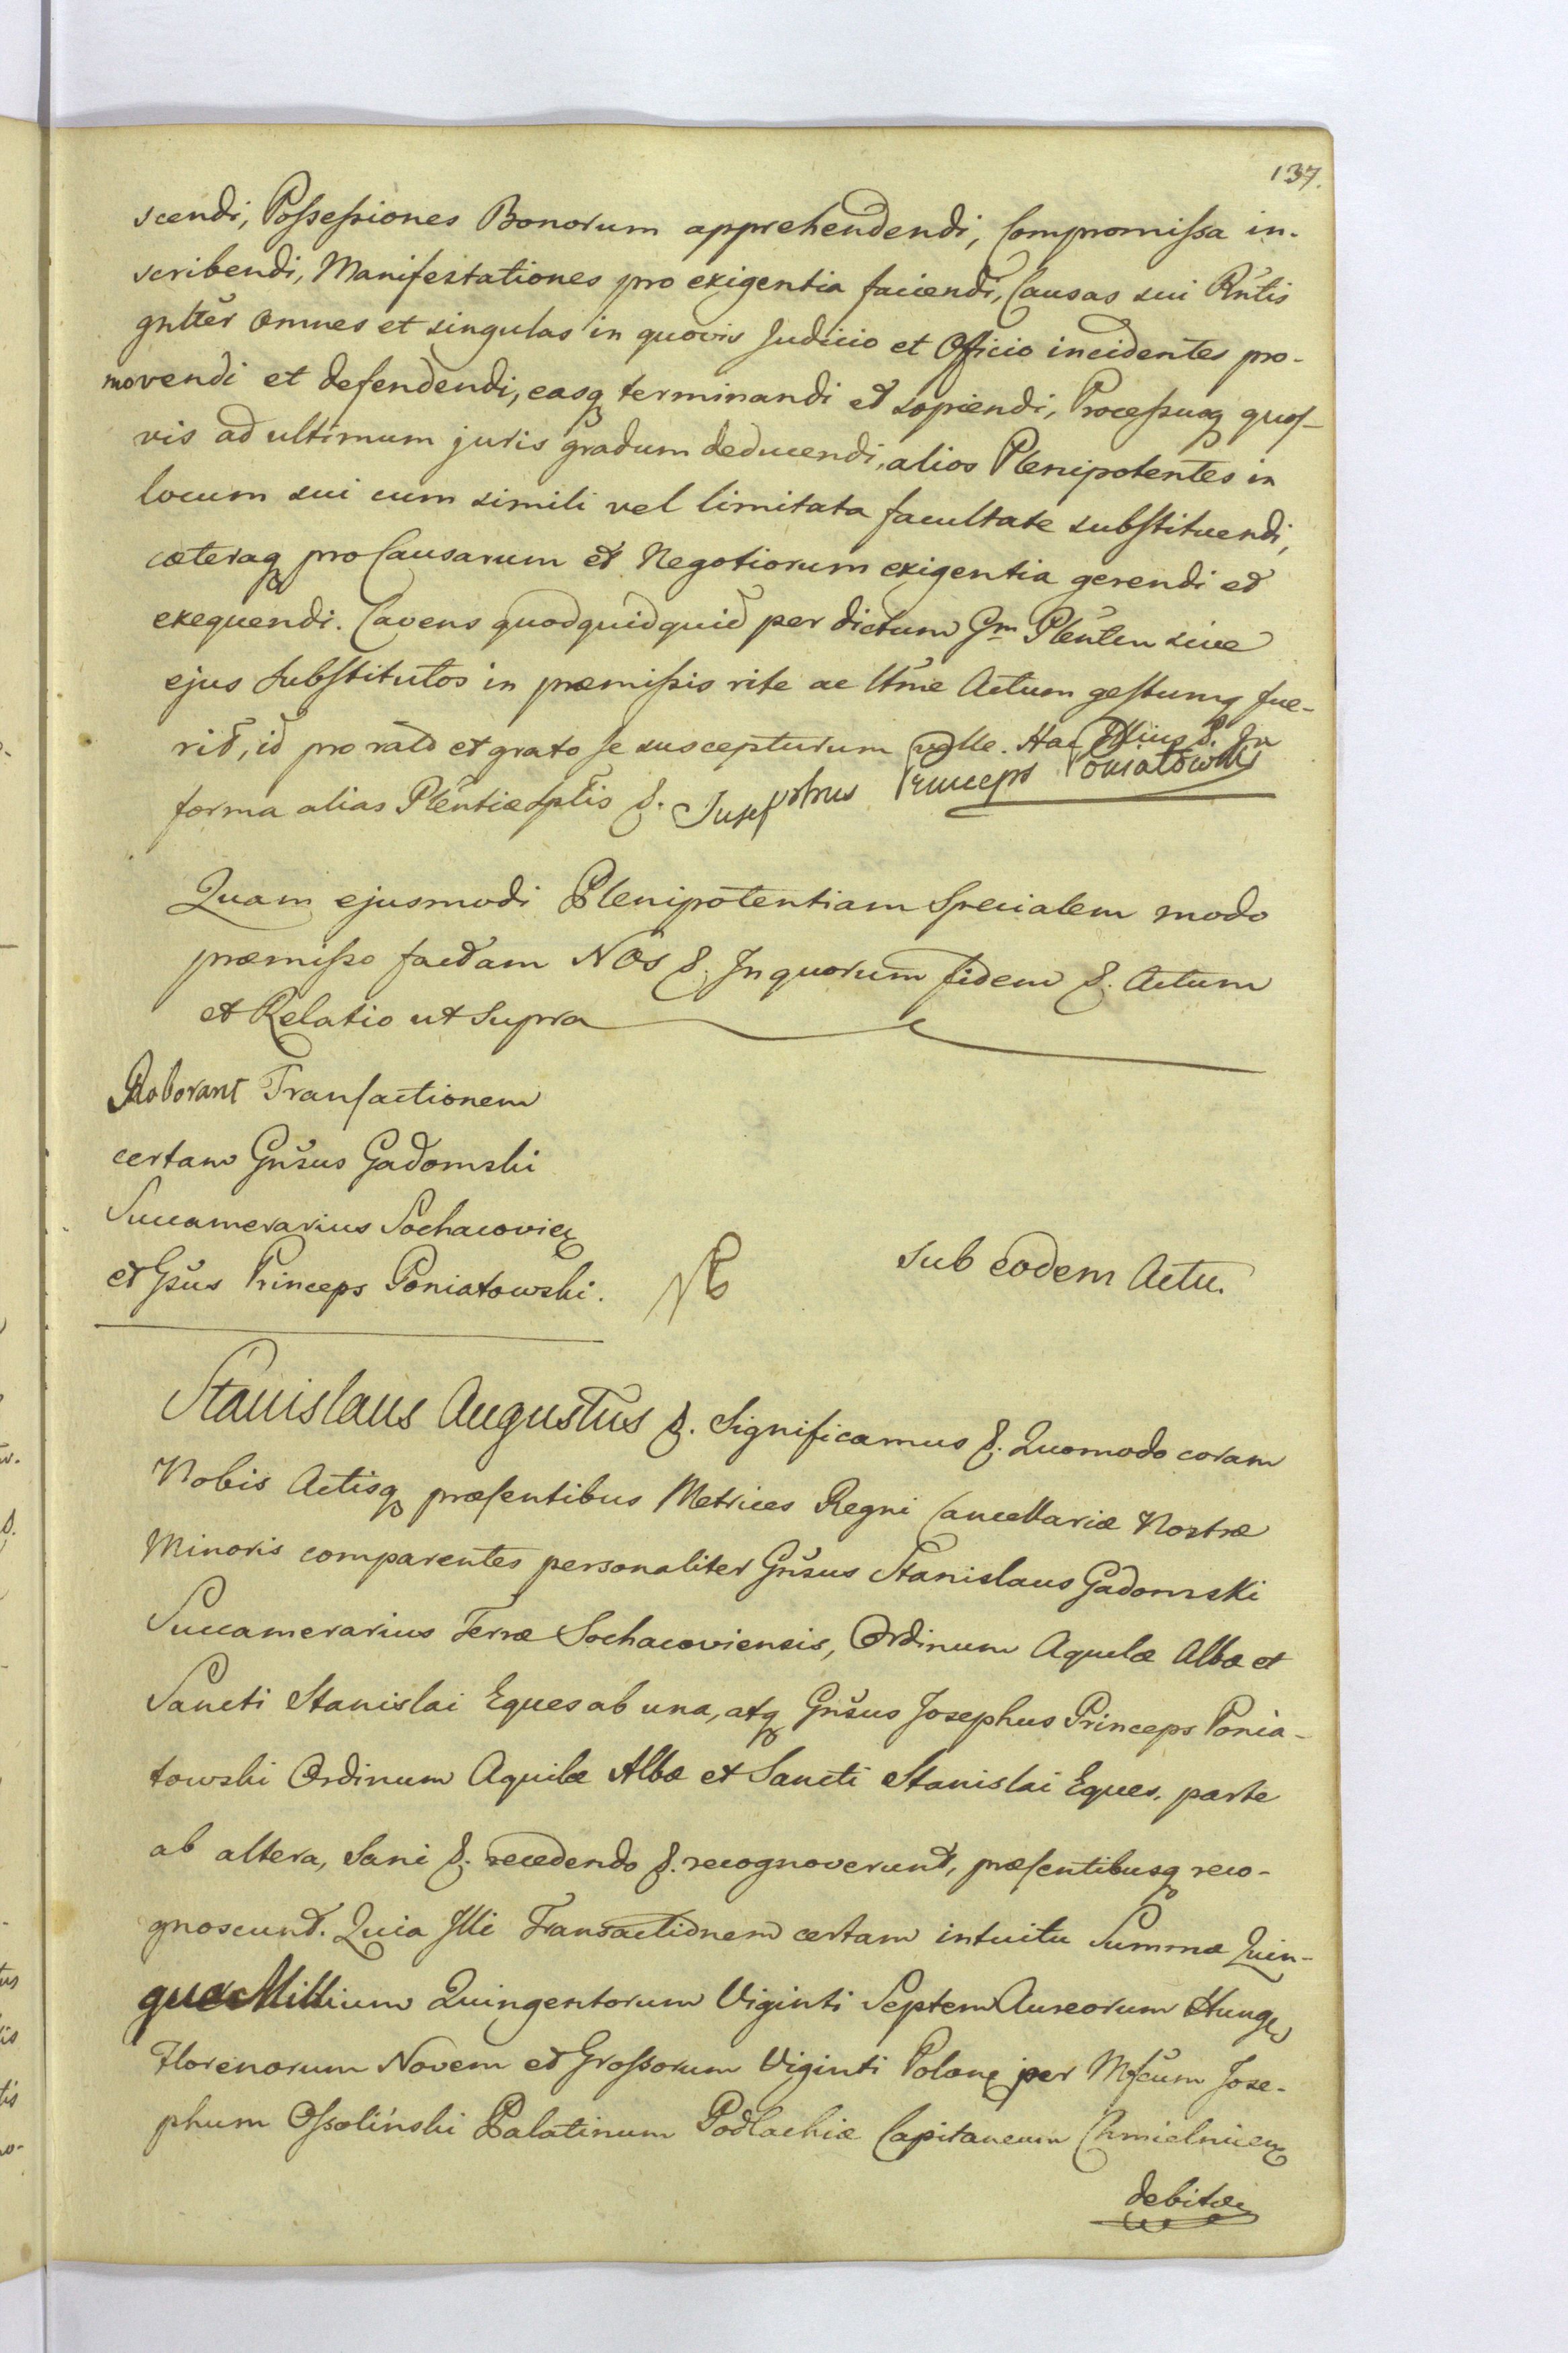 137.
scendi, Possessiones Bonorum apprehendendi, Compromissa in-
scribendi, Manifestationes pro exigentia faciendi, Causas sui Rntis
gnlter omnes et singulas in quovis Judicio et Officio incidentes pro-
movendi et defendendi, easq terminandi et sopiendi, Processusq quos-
vis ad ultimum juris gradum deducendi, alios Plenipotentes in
locum sui cum simili vel limitata facultate substituendi,
cæteraq pro Causarum et Negotiorum exigentia gerendi et
exequendi. Cavens quod quidquid per dictum Gm Plenten sive
ejus Substitutos in præmissis rite ac ltme Actum gestumq fue-
rit, id pro rato et grato se suscepturum velle. Hac Illius &. In
forma alias Plentiæ Sptis &. Josephus Princeps Poniatowski
Quam ejusmodi Plenipotentiam Specialem modo
præmisso factam Nos &. In quorum fidem &. Actum
et Relatio ut Supra
Roborant Transactionem
certam Gnsus Gadomski
Succamerarius Sochacovien
et Gsus Princeps Poniatowski.
Sub eodem Actu.
Stanislaus Augustus &. Significamus &. Quomodo coram
Nobis Actisq præsentibus Metrices Regni Cancellariæ Nostræ
Minoris comparentes personaliter Gnsus Stanislaus Gadomski
Succamerarius Terræ Sochacoviensis, Ordinum Aquilæ Albæ et
Sancti Stanislai Eques ab una, atq Gnsus Josephus Princeps Ponia-
towski Ordinum Aquilæ Albæ et Sancti Stanislai Eques, parte
ab altera, Sani &. recedendo &. recognoverunt, præsentibusq reco-
gnoscunt. Quia Illi Transactionem certam intuitu Summæ Quin-
que Millium Quingentorum Viginti Septem Aureorum Hung
Florenorum Novem et Grossorum Viginti Polon per Mfcum Jose-
phum Ossoliński Palatinum Podlachiæ Capitaneum Chmielnicen
debitæ